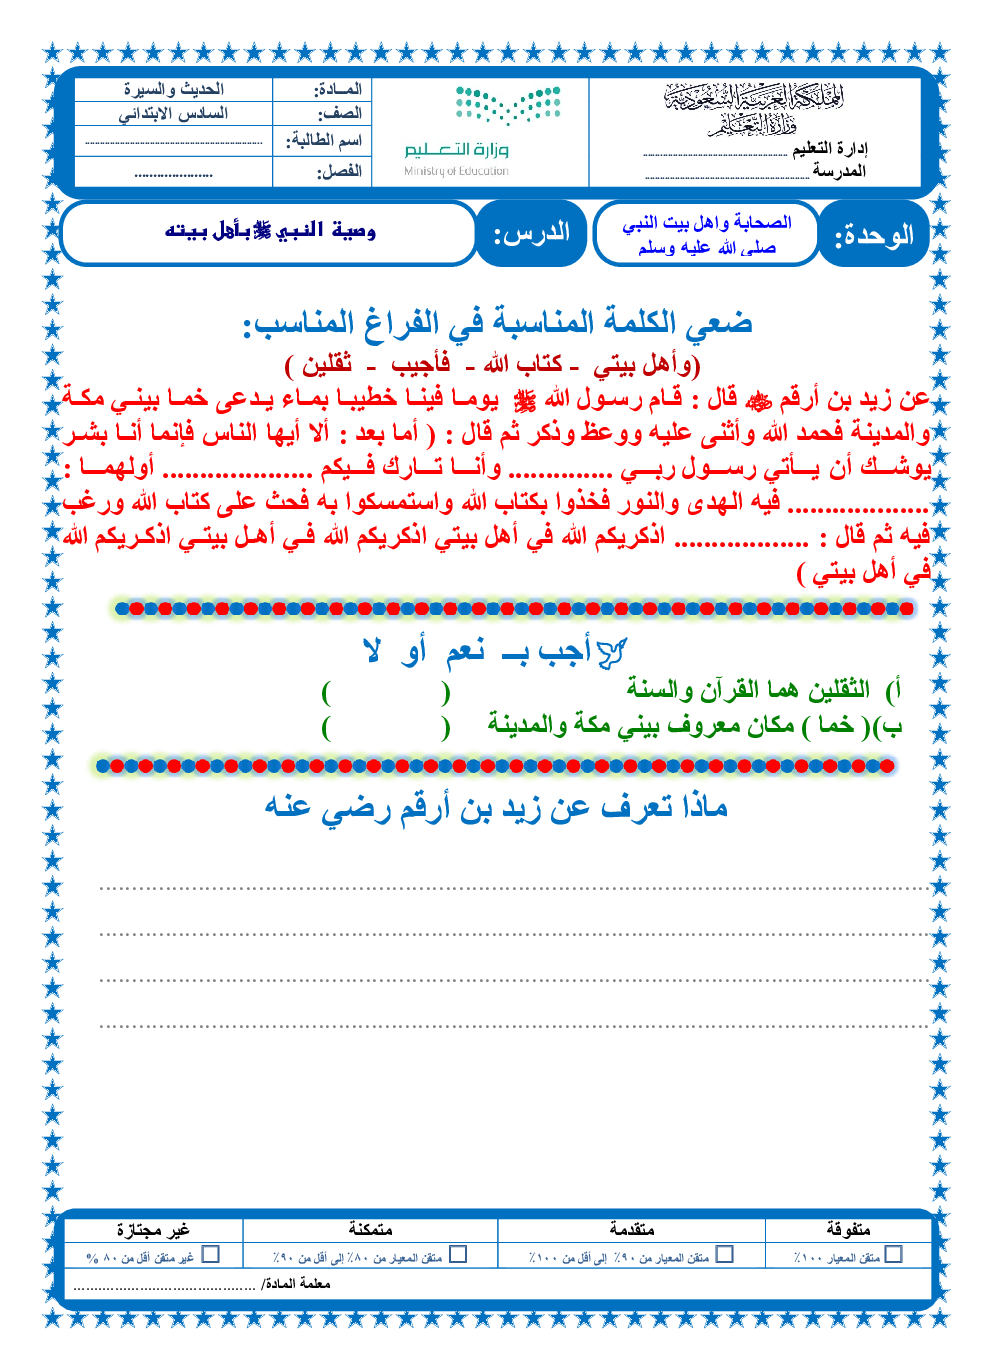 المملكة العربية السعودية
وزارة التعليم
إدارة التعليم ................................................
المدرسة .......................................................
وزارة التعـــليم
Ministry of Education
المــادة: الحديث والسيرة
الصف: السادس الابتدائي
اسم الطالبة: ...........................................................
الفصل: .....................
الوحدة: الصحابة واهل بيت النبي
صلى الله عليه وسلم
الدرس: وصية النبي ﷺ بأهل بيته
ضعي الكلمة المناسبة في الفراغ المناسب:
(وأهل بيتي - كتاب الله - فأجيب - ثقلين )
عن زيد بن أرقم رضي الله عنه قال : قـام رسـول الله ﷺ يومـا فينـا خطيبـا بمـاء يـدعى خمـا بينـي مكـة
والمدينة فحمد الله وأثنى عليه ووعظ وذكر ثم قال : ( أما بعد : ألا أيها الناس فإنما أنـا بشـر
يوشــك أن يــأتي رســول ربــي .............. وأنــا تــارك فــيكم .................... أولهمــا :
................... فيه الهدى والنور فخذوا بكتاب الله واستمسكوا به فحث على كتاب الله ورغب
فيه ثم قال : .................. اذكريكم الله في أهل بيتي اذكريكم الله فـي أهـل بيتـي اذكـريكم الله
في أهل بيتي )
أجب بــ نعم أو لا
أ) الثقلين هما القرآن والسنة ( )
ب)( خما ) مكان معروف بيني مكة والمدينة ( )
ماذا تعرف عن زيد بن أرقم رضي عنه
......................................................................................................
......................................................................................................
......................................................................................................
......................................................................................................
متفوقة متقدمة متمكنة غير مجتازة
☐ متقن المعيار ١٠٠٪ ☐ متقن المعيار من ٩٠٪ إلى أقل من ١٠٠٪ ☐ متقن المعيار من ٨٠٪ إلى أقل من ٩٠٪ ☐ غير متقن أقل من ٨٠ %
معلمة المادة/ ...........................................